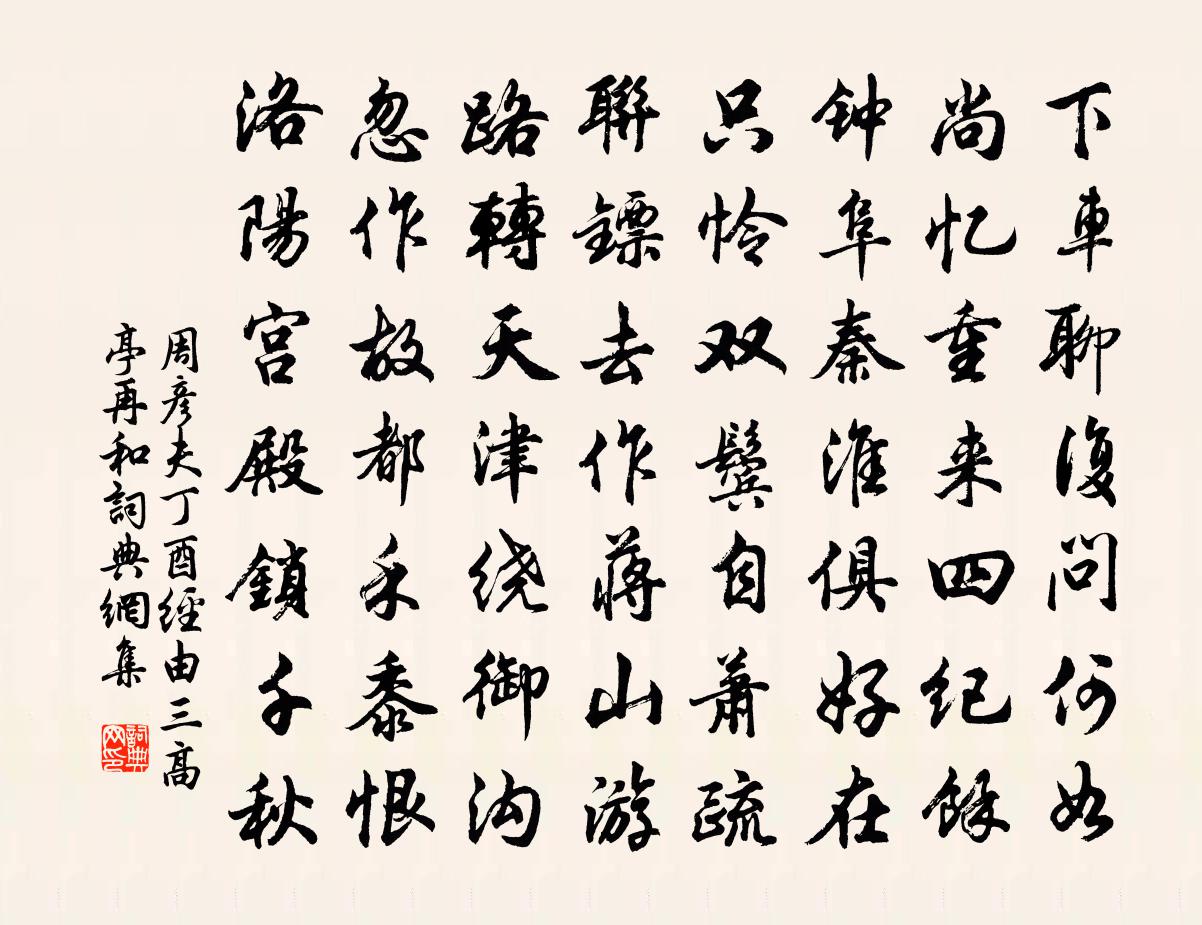 下車聊復问何如
尚忆重来四纪餘
钟阜秦淮俱好在
只怜双鬓自萧疏
聯镖去作蒋山游
路轉天津绕御沟
忽作故都禾黍恨
洛陽宫殿鎖千秋
周彦夫丁酉經由三高
亭再和詞典網集
詞典
网印